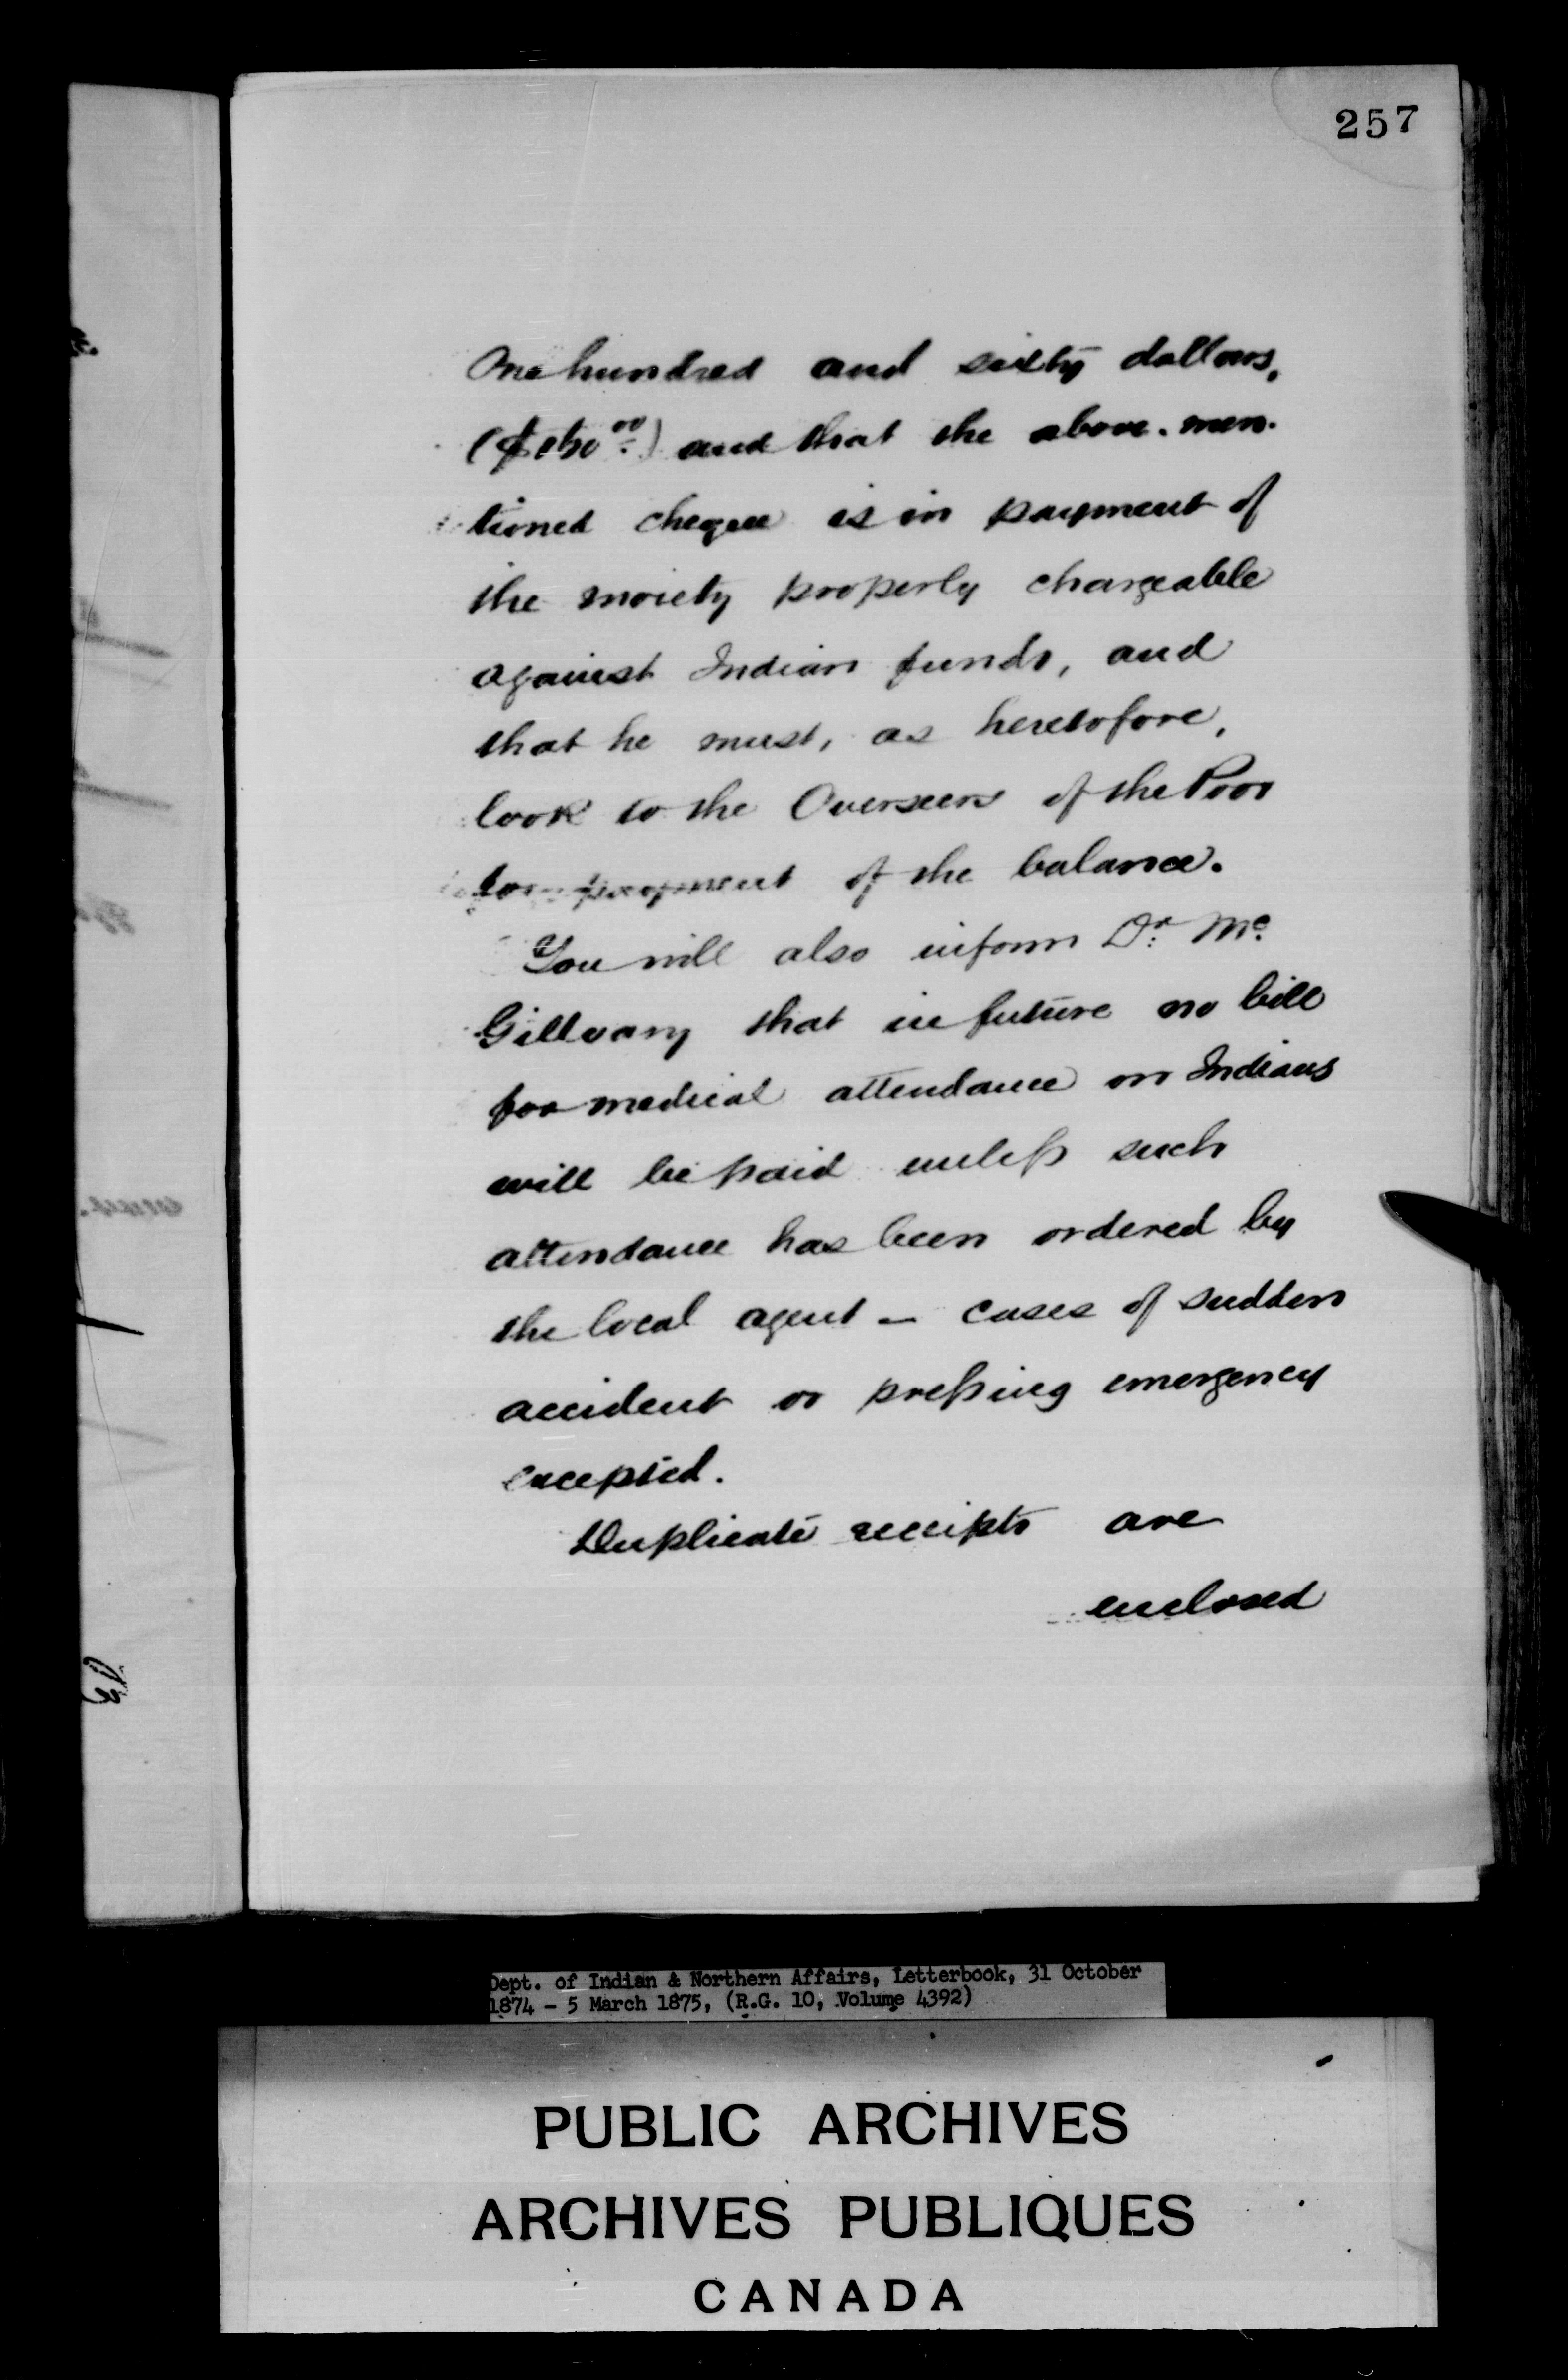 257
One hundred and sixty dollars,
($160.00) and that the above-men-
tioned cheque is in payment of
the moiety properly chargeable
against Indian funds, and
that he must, as heretofore,
look to the Overseers of the Poor
for payment of the balance.
You will also inform Dr. Mc
Gillvary that in future no bill
for medical attendance on Indians
will be paid unless such
attendance has been ordered by
the local agent — cases of sudden
accident or pressing emergency
excepted.
Duplicate receipts are
enclosed
Dept. of Indian & Northern Affairs, Letterbook, 31 October
1874 - 5 March 1875, (R.G. 10, Volume 4392)
PUBLIC ARCHIVES
ARCHIVES PUBLIQUES
CANADA